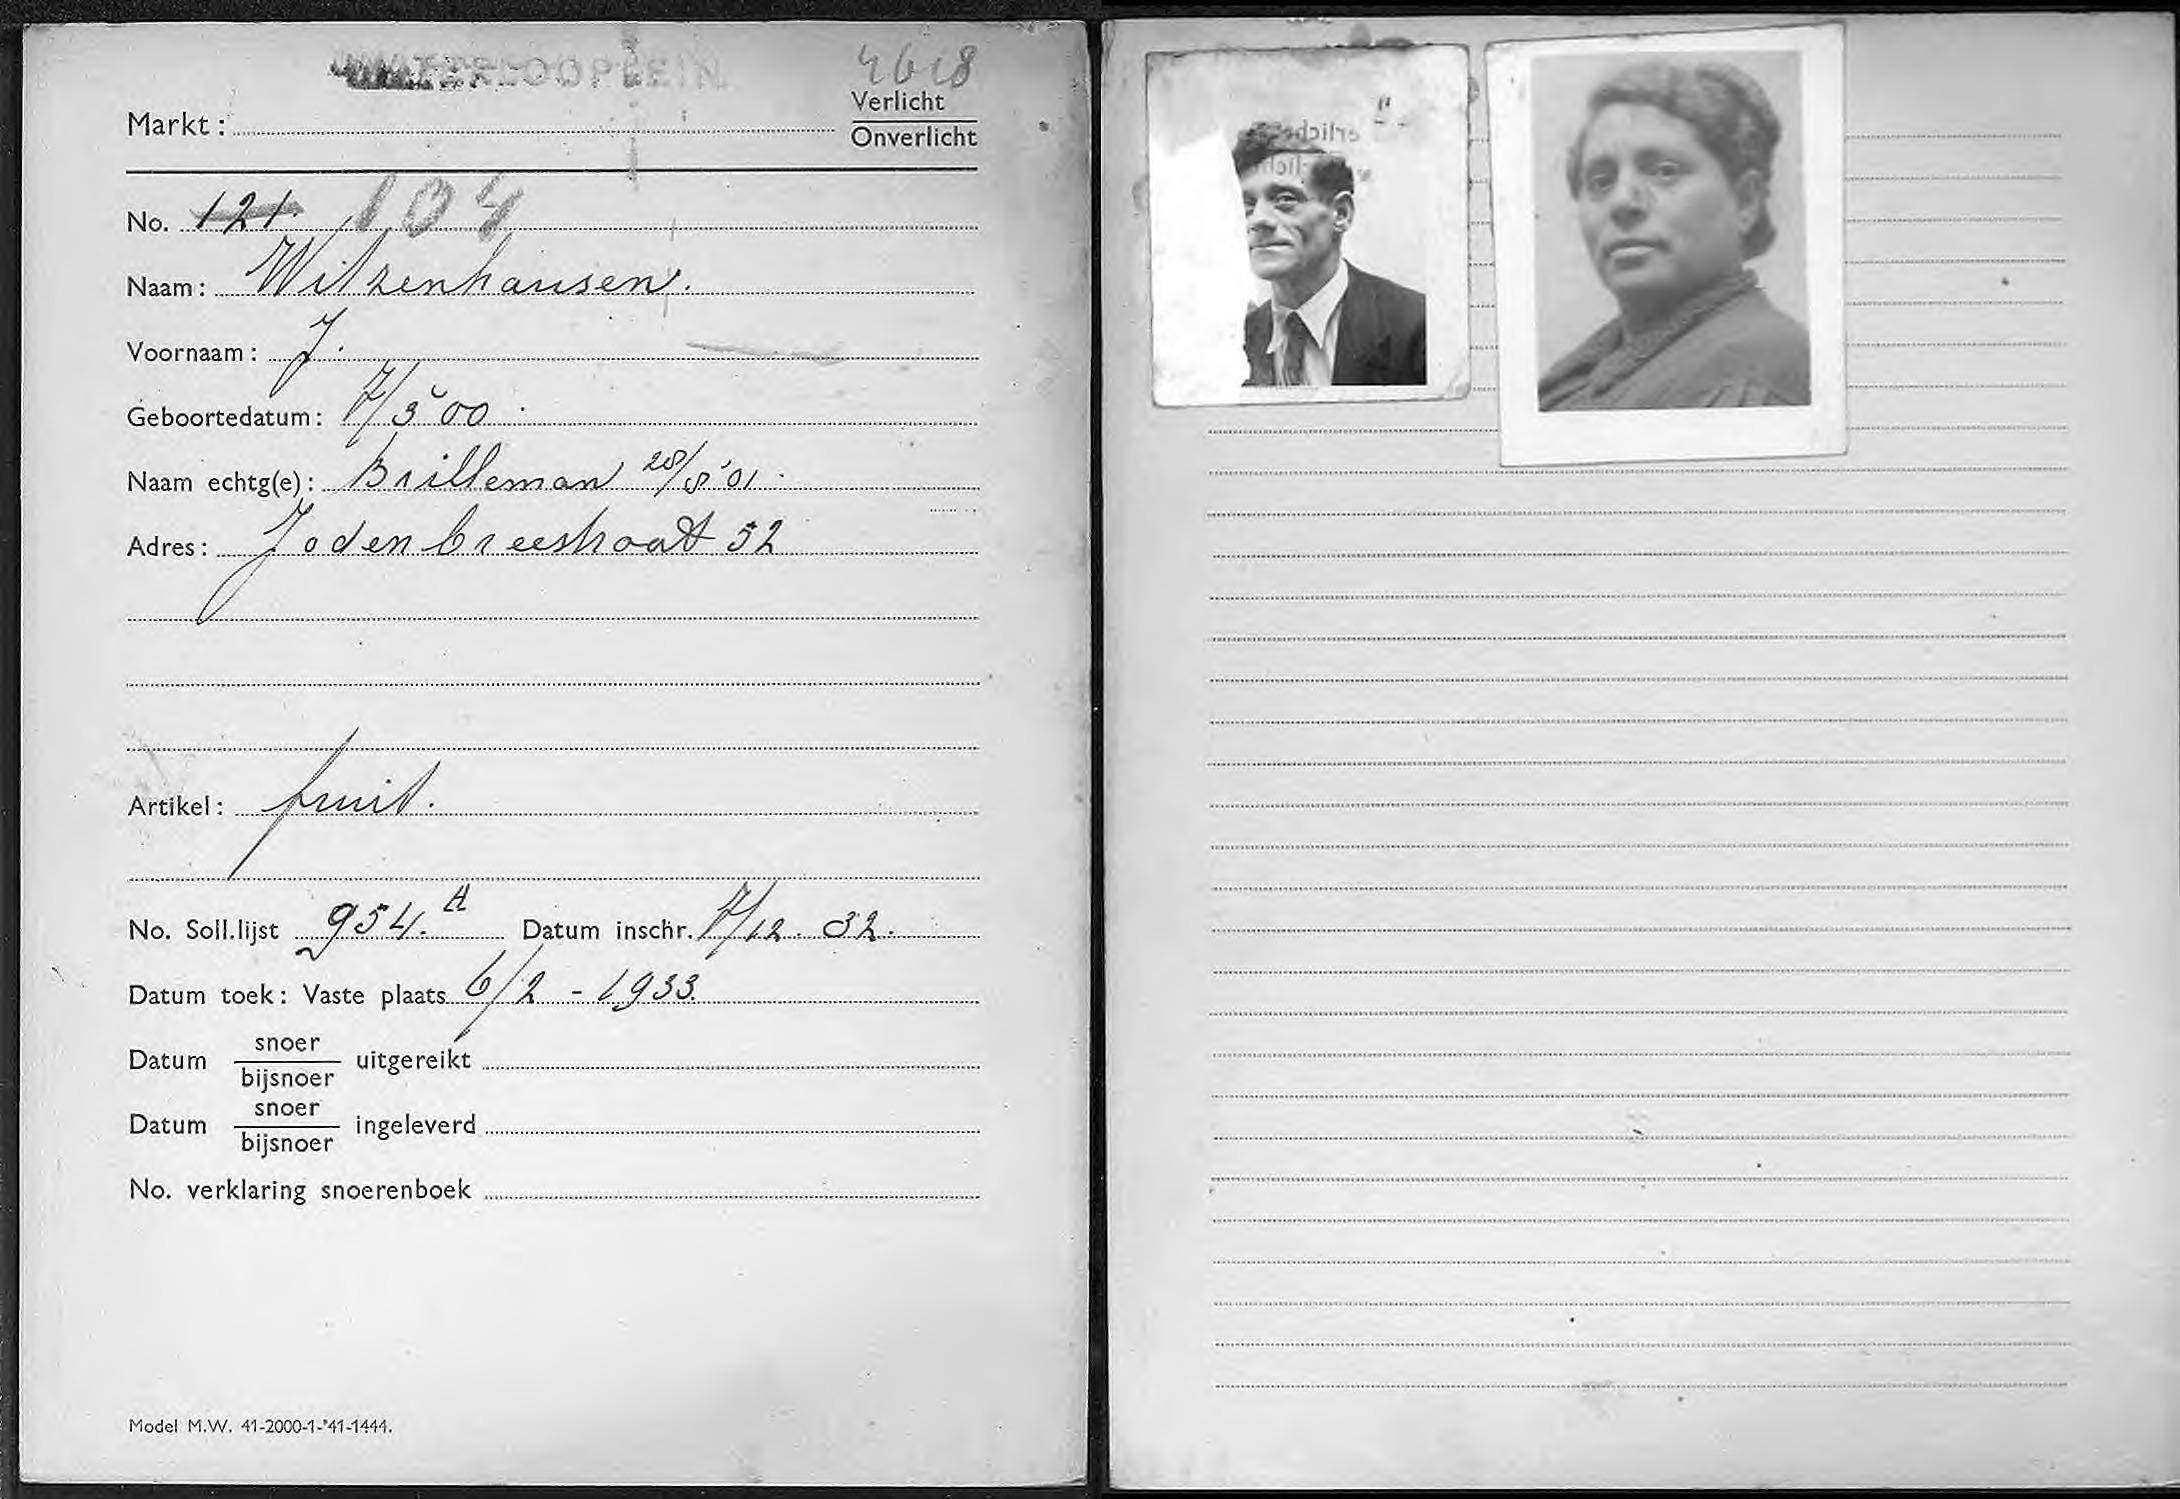 WATERLOOPLEIN
4618
Verlicht
Markt :
Onverlicht
No. 121 104
Naam : Witzenhausen.
Voornaam : J.
Geboortedatum : 7/3 '00
Naam echtg(e) : Brilleman 28/8 '01
Adres : Jodenbreestraat 52
Artikel : fruit.
No. Soll.lijst 954. A Datum inschr. 7/12. 32.
Datum toek : Vaste plaats 6/2 - 1933.
snoer
Datum uitgereikt
bijsnoer
snoer
Datum ingeleverd
bijsnoer
No. verklaring snoerenboek
Model M.W. 41-2000-1-'41-1444.